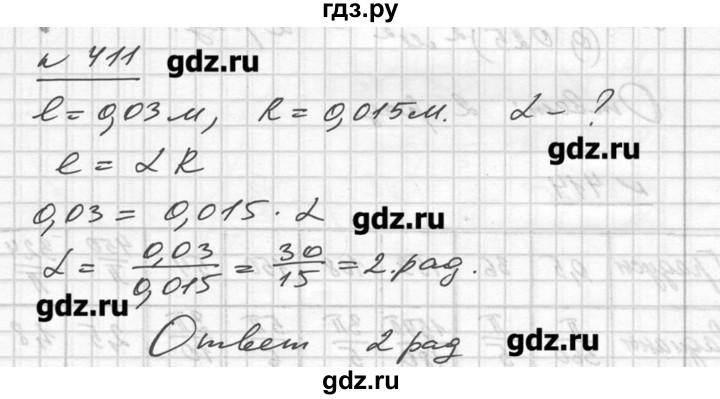 гдз.ру
№ 411 gdz.ru
l = 0,03 м, R = 0,015 м. α - ?
gdz.ru
l = α R
0,03 = 0,015 · α gdz.ru
α = 0,03/0,015 = 30/15 = 2 рад.
gdz.ru
Ответ 2 рад gdz.ru
gdz.ru